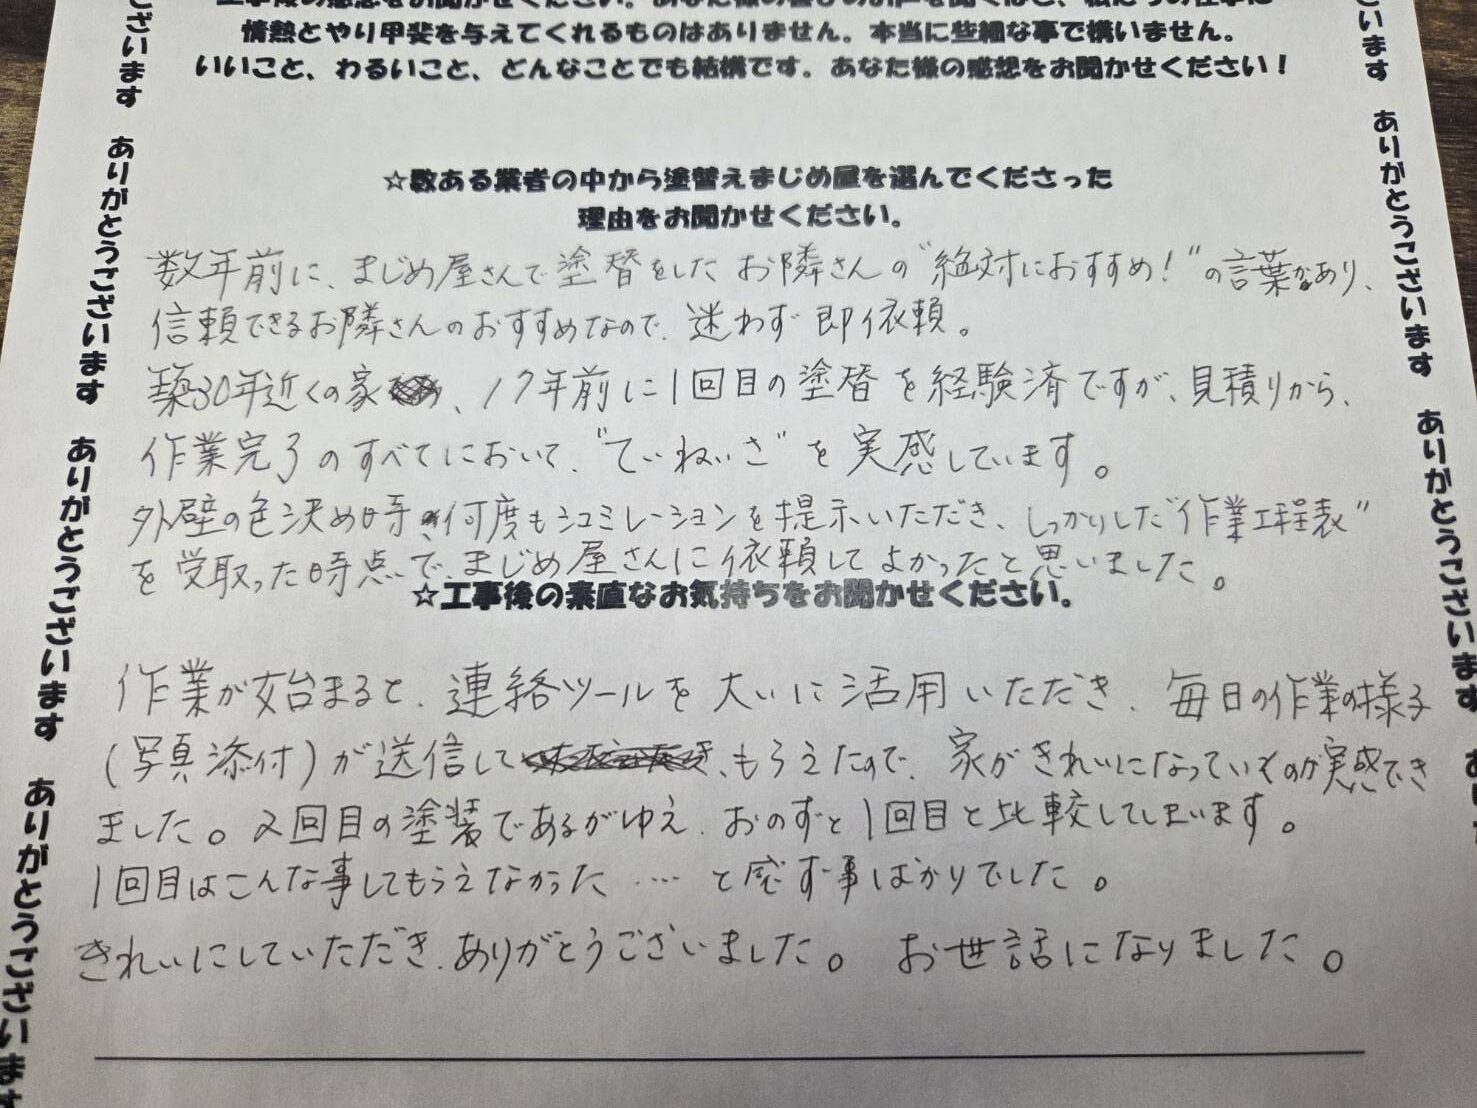 工事後の感想をお聞かせください。あなた様の喜びのお声を聞くほど、私たちの仕事に
情熱とやり甲斐を与えてくれるものはありません。本当に些細な事で構いません。
いいこと、わるいこと、どんなことでも結構です。あなた様の感想をお聞かせください！
☆数ある業者の中から塗替えまじめ屋を選んでくださった
理由をお聞かせください。
数年前に、まじめ屋さんで塗替をしたお隣さんの“絶対におすすめ！”の言葉があり、
信頼できるお隣さんのおすすめなので、迷わず即依頼。
築30年近くの家、17年前に1回目の塗替を経験済ですが、見積りから、
作業完了のすべてにおいて、“ていねいさ”を実感しています。
外壁の色決め時、何度もシュミレーションを提示いただき、しっかりした“作業工程表”
を受取った時点で、まじめ屋さんに依頼してよかったと思いました。
☆工事後の素直なお気持ちをお聞かせください。
作業が始まると、連絡ツールを大いに活用いただき、毎日の作業の様子
(写真添付)が送信してもらえたので、家がきれいになっていくのが実感でき
ました。2回目の塗装であるがゆえ、おのずと1回目と比較してしまいます。
1回目はこんな事してもらえなかった…と感ず事ばかりでした。
きれいにしていただき、ありがとうございました。お世話になりました。
ございます ありがとうございます ありがとうございます ありがとうございます
ございます ありがとうございます ありがとうございます